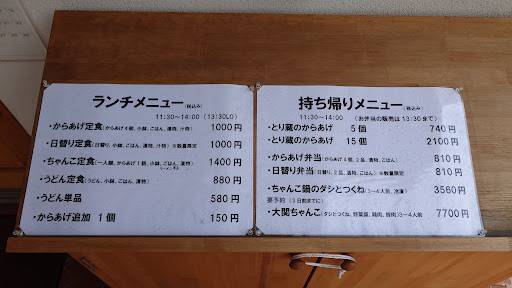 ランチメニュー(税込み)
11:30~14:00 (13:30LO)
・からあげ定食(からあげ4個、小鉢、ごはん、漬物、汁物) 1000円
・日替り定食(日替り、小鉢、ごはん、漬物、汁物) ※数量限定 1000円
・ちゃんこ定食(一人鍋、からあげ1個、小鉢、ごはん、漬物) 1400円
・うどん定食(うどん、小鉢、ごはん、漬物) 880円
・うどん単品 580円
・からあげ追加 1個 150円
持ち帰りメニュー(税込み)
11:30~14:00 (お弁当の販売は 13:30 まで)
・とり蔵のからあげ 5個 740円
・とり蔵のからあげ 15個 2100円
・からあげ弁当(からあげ4個、2品、漬物、ごはん) 810円
・日替り弁当(日替り、2品、漬物、ごはん) ※数量限定 810円
・ちゃんこ鍋のダシとつくね(3~4人前、冷凍) 3560円
要予約 (3日前までに)
・大関ちゃんこ(ダシとつくね、野菜類、鶏肉、豚肉)3~4人前 7700円